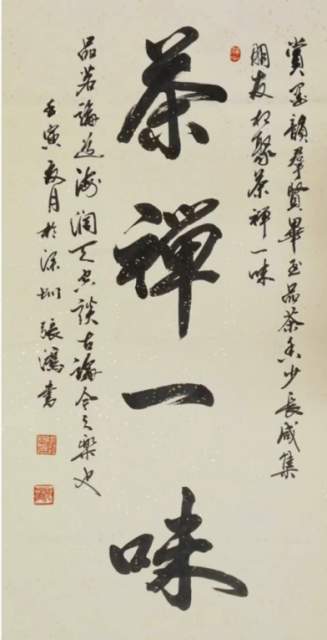 賞墨韻群賢畢至品茶香少長咸集
朋友相聚茶禪一味
茶禪一味
品茗論道海闊天空談古論今之樂也
壬寅夏月於深圳張鴻書